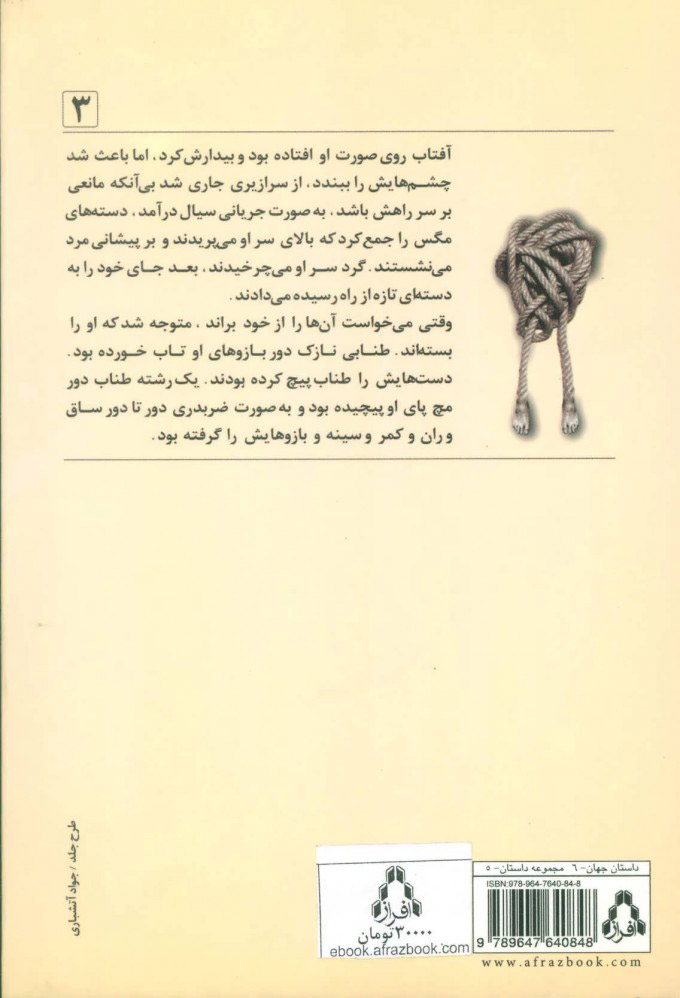 ۳
آفتاب روی صورت او افتاده بود و بیدارش کرد، اما باعث شد
چشم‌هایش را ببندد، از سرازیری جاری شد بی‌آنکه مانعی
بر سر راهش باشد، به صورت جریانی سیال درآمد، دسته‌های
مگس را جمع کرد که بالای سر او می‌پریدند و بر پیشانی مرد
می‌نشستند. گرد سر او می‌چرخیدند، بعد جای خود را به
دسته‌ای تازه از راه رسیده می‌دادند.
وقتی می‌خواست آن‌ها را از خود براند، متوجه شد که او را
بسته‌اند. طنابی نازک دور بازوهای او تاب خورده بود.
دست‌هایش را طناب پیچ کرده بودند. یک رشته طناب دور
مچ پای او پیچیده بود و به صورت ضربدری دور تا دور ساق
و ران و کمر و سینه و بازوهایش را گرفته بود.
طرح جلد / جواد آتشباری
افراز
۳۰۰۰۰ تومان
ebook.afrazbook.com
داستان جهان-۶ مجموعه داستان-۵
ISBN:978-964-7640-84-8
افراز
9 789647 640848
www.afrazbook.com